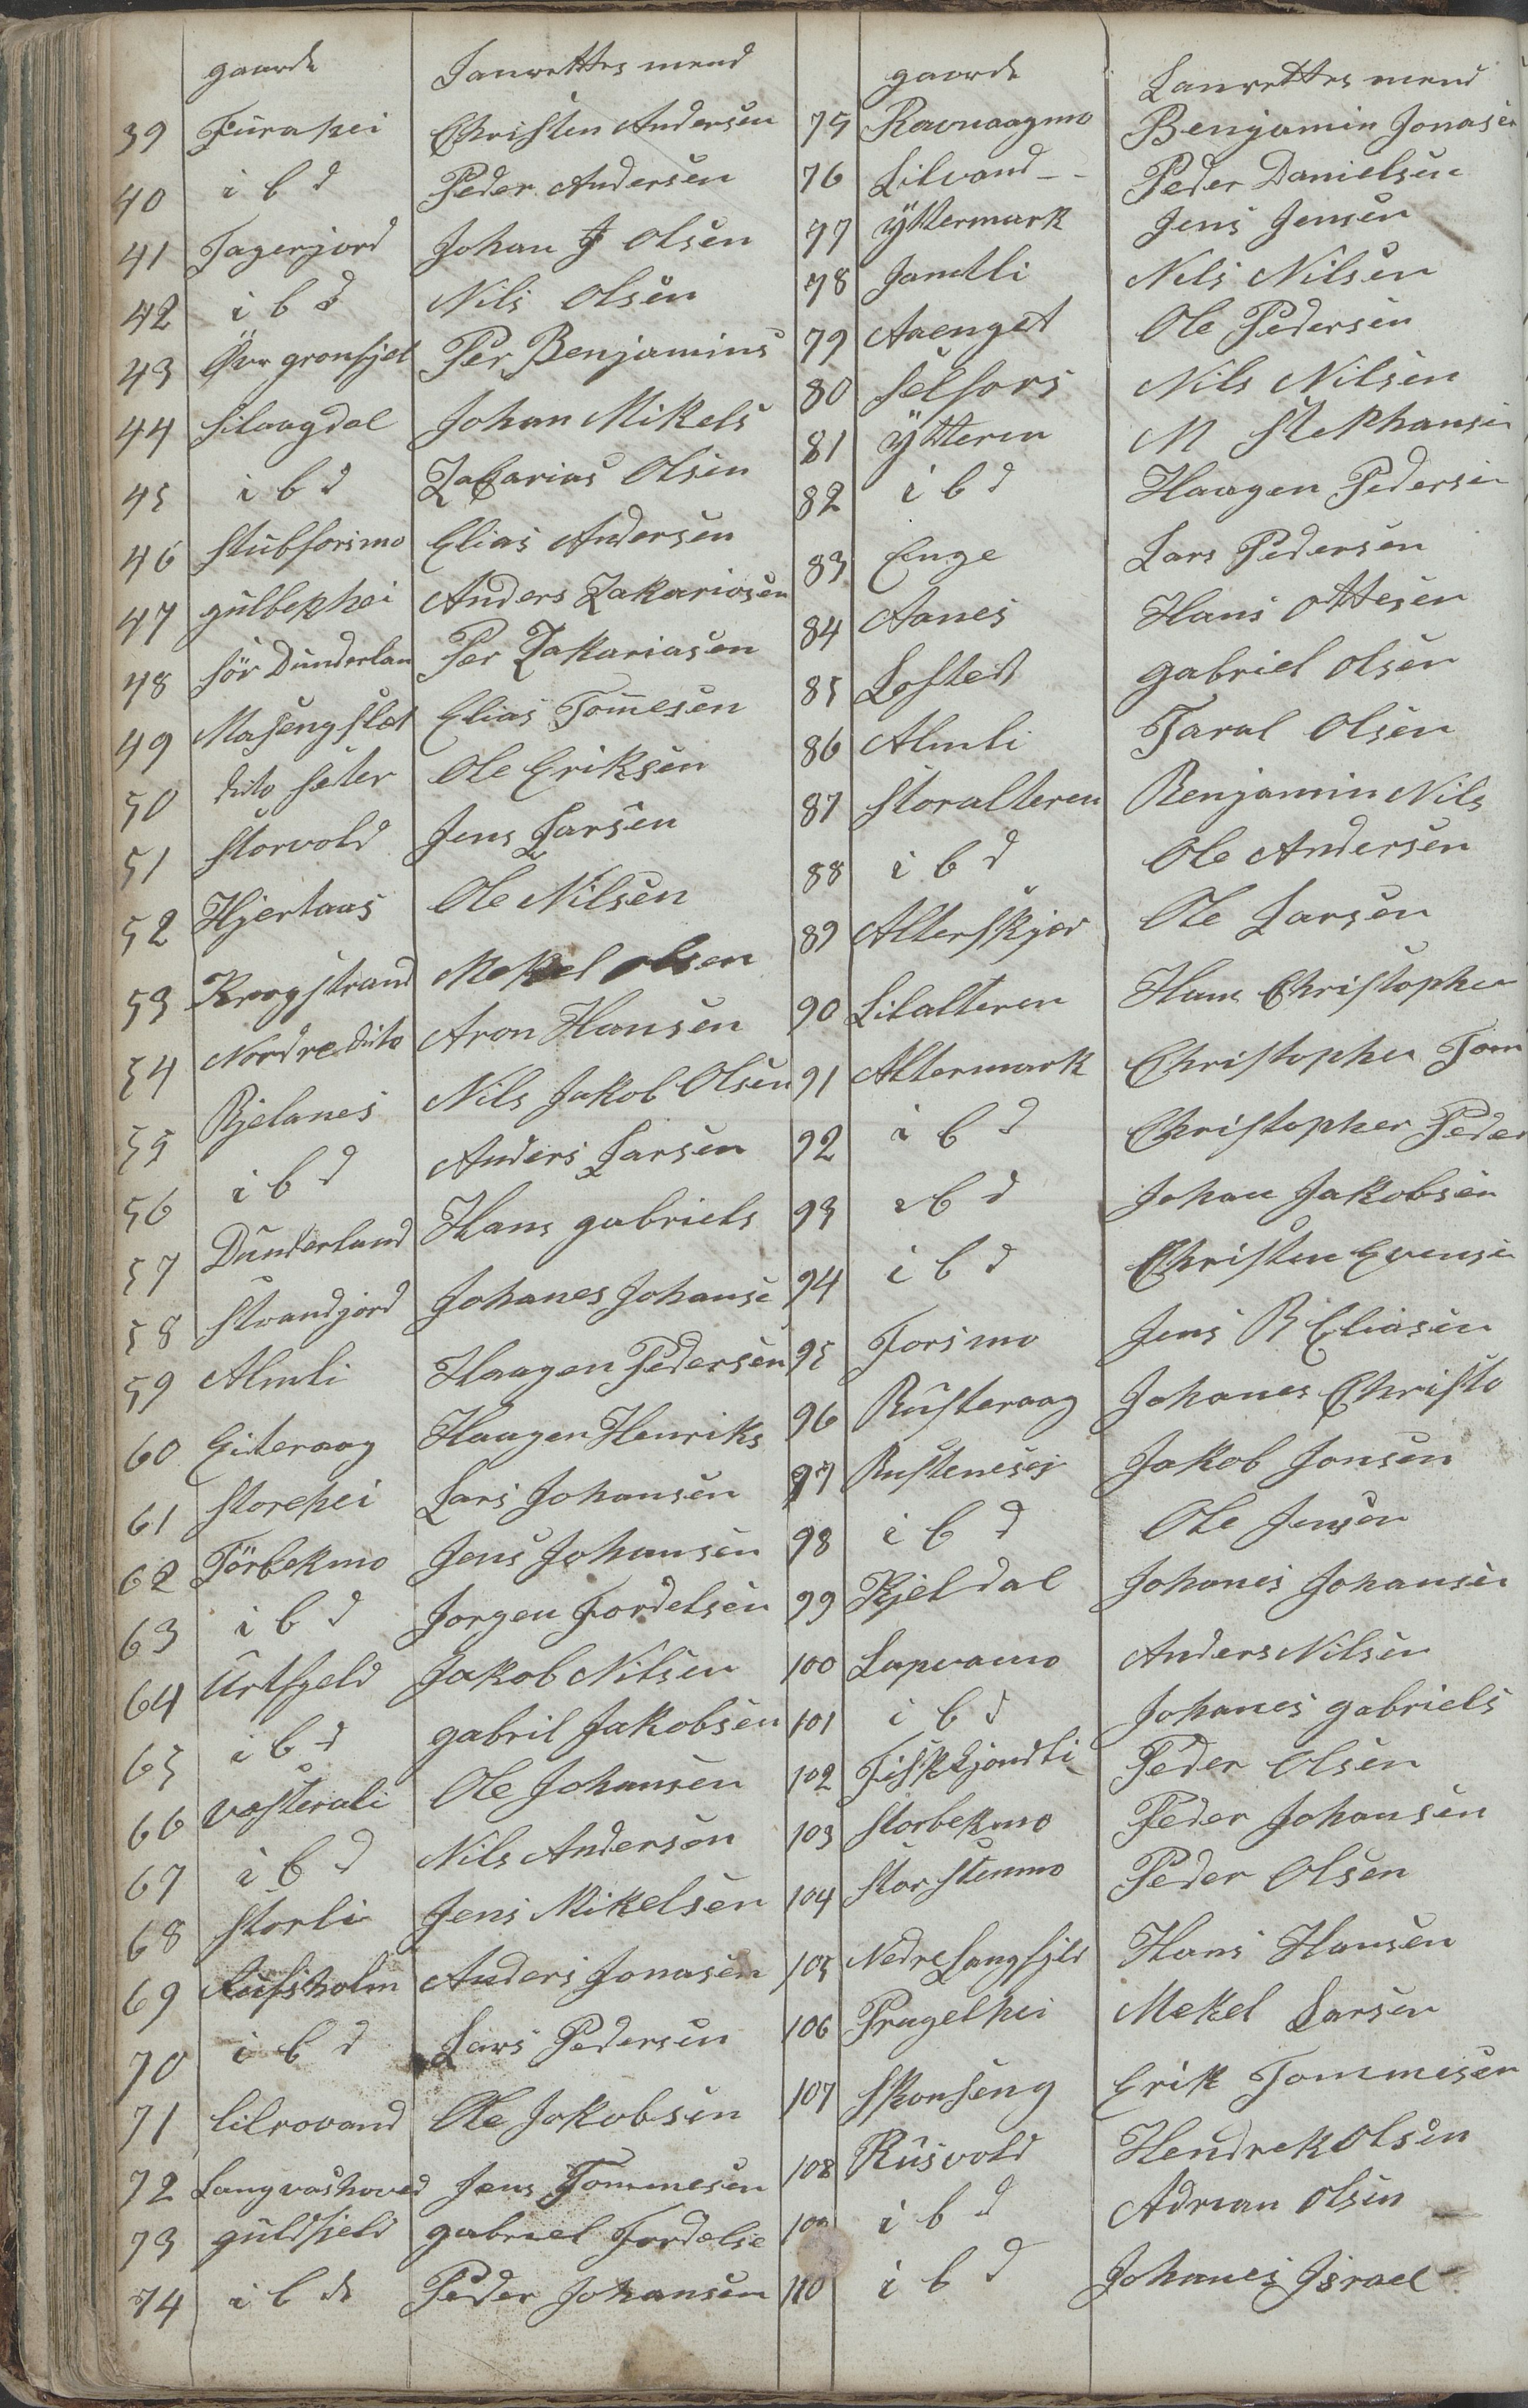 gaarde Lanrettes mend
39 Furahei Christen Andersen
40 i b d Peder Andersen
41 Fagerjord Johan J Olsen
42 i b d Nils Olsen
43 Øvr gronfjel Per Benjamins
44 Silaagdal Johan Mikels
45 i b d Zakarias Olsen
46 Stubforsmo Elias Andersen
47 gulbekhei Anders Zakariasen
48 Sör Dunderlan Per Zakariasen
49 Masengslet Elias Tom̄esen
50 dito Sæter Ole Eriksen
51 Storvold Jens Larsen
52 Hjertaas Ole Nilsen
53 Krogstrand Mekel olsen
54 Nordre dito Aron Hansen
55 Bjelanes Nils Jakob Olsen
56 i b d Anders Larsen
57 Dunderland Hans gabriels
58 Strandjord Johanes Johanse
59 Almli Haagen Pedersen
60 Eiteraag Haagen Henriks
61 Storehei Lars Johansen
62 Törbekmo Jens Johansen
63 i b d Jorgen Fordelsen
64 Urtfjeld Jakob Nilsen
65 i b d gabril Jakobsen
66 vesterali Ole Johansen
67 i b d Nils Andersen
68 Storli Jens Mikelsen
69 Rufsholm Anders Jonasen
70 i b d Lars Pedersen
71 lilrovand Ole Jakobsen
72 Langvashoved Jens Tommesen
73 guldfjeld gabriel Fordelse
74 i b d Peder Johansen
gaarde Lanrettes mend
75 Ravnaagmo Benjamin Jonasen
76 Lilvand -- Peder Danielsen
77 yttermark Jens Jensen
78 Jamtli Nels Nilsen
79 Aaenget Ole Pedersen
80 Selfors Nils Nilsen
81 ytteren M Stephansen
82 i b d Haagen Pedersen
83 Enge Lars Pedersen
84 Aanes Hans Ottesen
85 Loftet gabriel olsen
86 Almli Taral Olsen
87 Storalteren Benjamin Nils
88 i b d Ole Andersen
89 Alterskjær Ole Larsen
90 Lilalteren Hans Christopher
91 Altermark Christopher Tom
92 i b d Christopher Peder
93 i b d Johan Jakobsen
94 i b d Christen Evensen
95 Forsmo Jens B Eliasen
96 Rusteraag Johanes Christo
97 Rustenesei Jakob Jonsen
98 i b d Ole Jensen
99 Kjeldal Johanes Johansen
100 Lapvamo Anders Nilsen
101 i b d Johanes gabriels
102 Fisktjondli Peder Olsen
103 Storbekmo Peder Johansen
104 Storstenmo Peder Olsen
105 Nedre Langfjeld Hans Hansen
106 Pragelhei Mekel Larsen
107 Skonseng Erik Tommesen
108 Rusvold Hendrek Olsen
109 i b d Adrian Olsen
110 i b d Johanes Israel